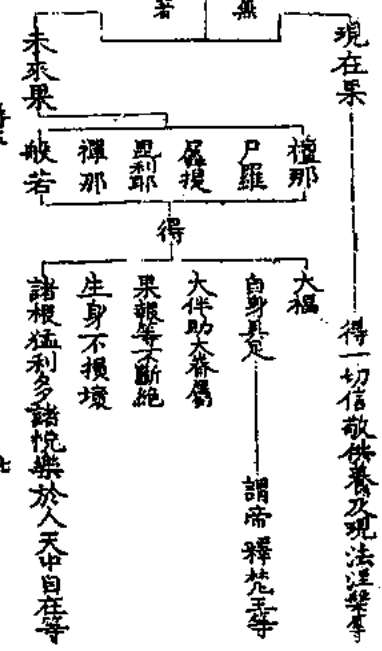 無
若
現在果
得一切信敬供養及現法涅槃等
未來果
檀那
尸羅
羼提
毘利耶
禪那
般若
得
大福
自身具足
謂帝釋梵王等
大伴助大眷屬
果報等不斷絕
生身不損壞
諸根猛利多諸悅樂於人天中自在等